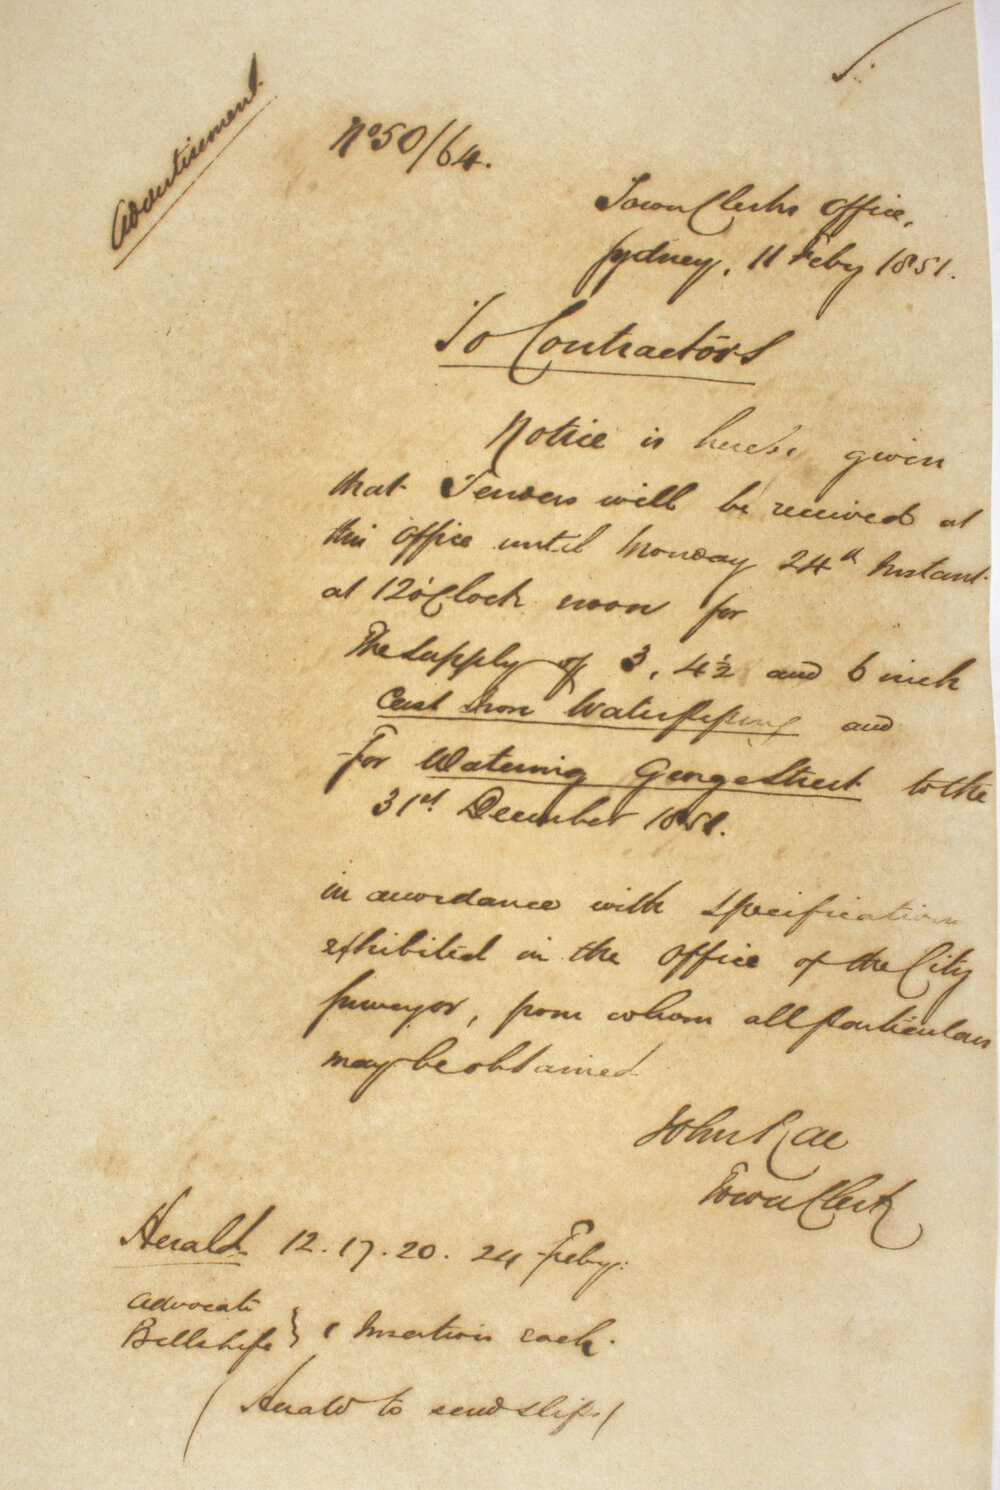 Advertisement
No 50/64.
Town Clerks Office,
Sydney, 11 Feby 1851.
To Contractors
Notice is hereby given
that Tenders will be received at
this Office until Monday 24th Instant
at 12 o'Clock noon for
The Supply of 3, 4½ and 6 inch
Cast Iron Waterpiping and
For Watering George Street to the
31st December 1851.
in accordance with Specification
exhibited in the Office of the City
Surveyor, from whom all particulars
may be obtained
John Rae
Town Clerk
Herald 12. 17. 20. 24 Feby.
Advocate
Bells Life } 1 Insertion each.
(Herald to send slips)